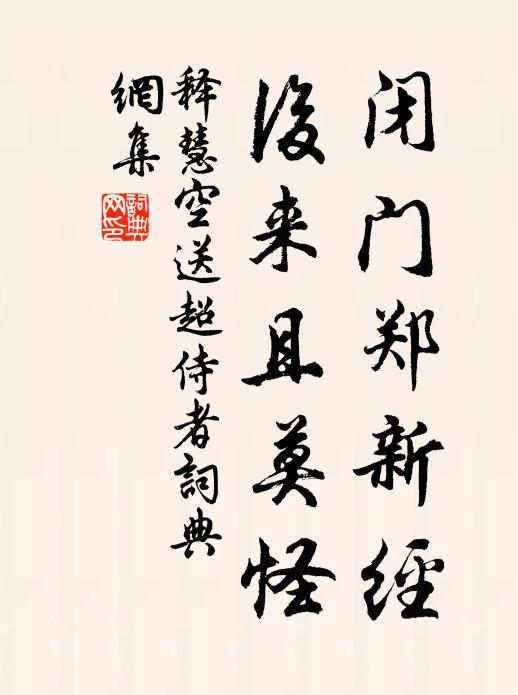 闭门郑新经
後来且莫怪
释慧空送超侍者詞典
網集
詞典网印